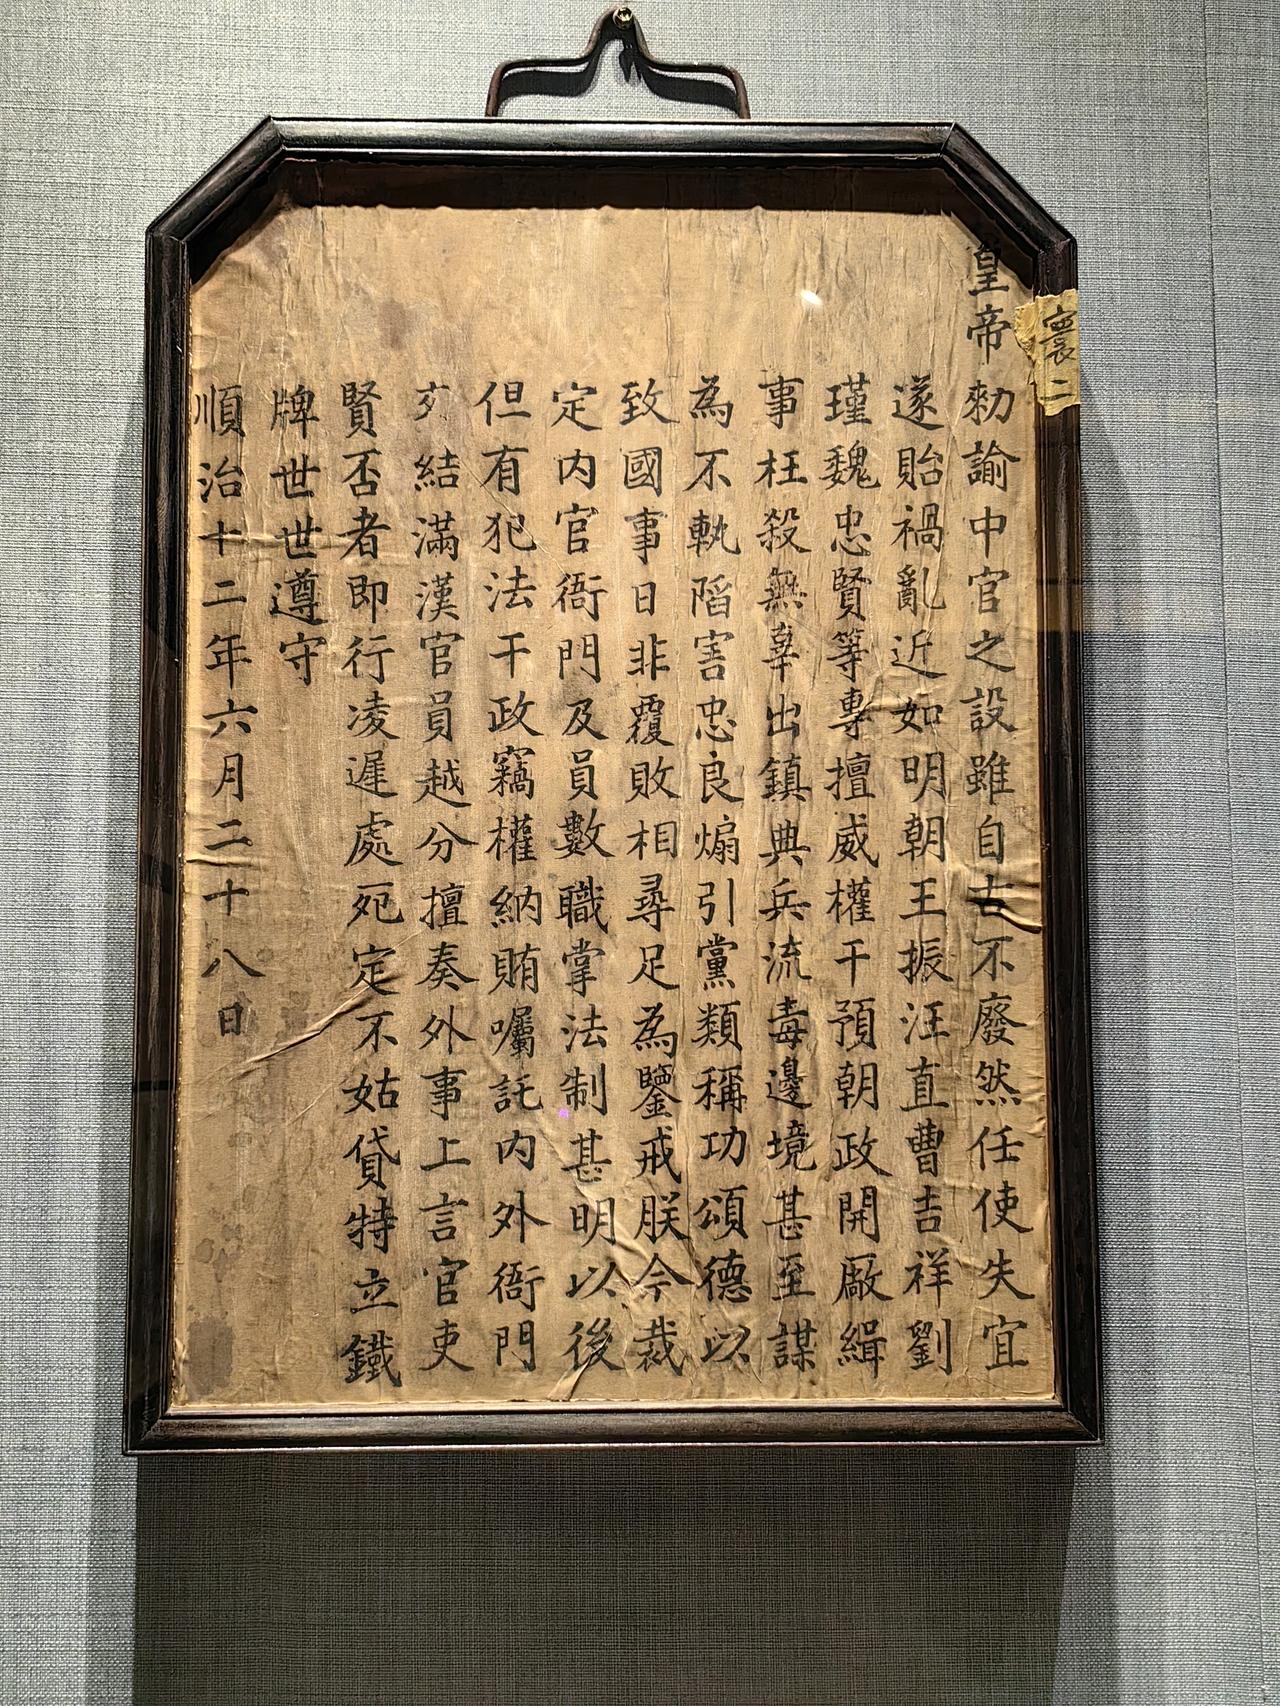 皇帝勅諭中官之設雖自古不廢然任使失宜
遂貽禍亂近如明朝王振汪直曹吉祥劉
瑾魏忠賢等專擅威權干預朝政開厰緝
事枉殺無辜出鎮典兵流毒邊境甚至謀
為不軌陷害忠良煽引黨類稱功頌德以
致國事日非覆敗相尋足為鑒戒朕今裁
定内官衙門及員數職掌法制甚明以後
但有犯法干政竊權納賄囑託内外衙門
交結滿漢官員越分擅奏外事上言官吏
賢否者即行凌遲處死定不姑貸特立鐵
牌世世遵守
順治十二年六月二十八日
寰二